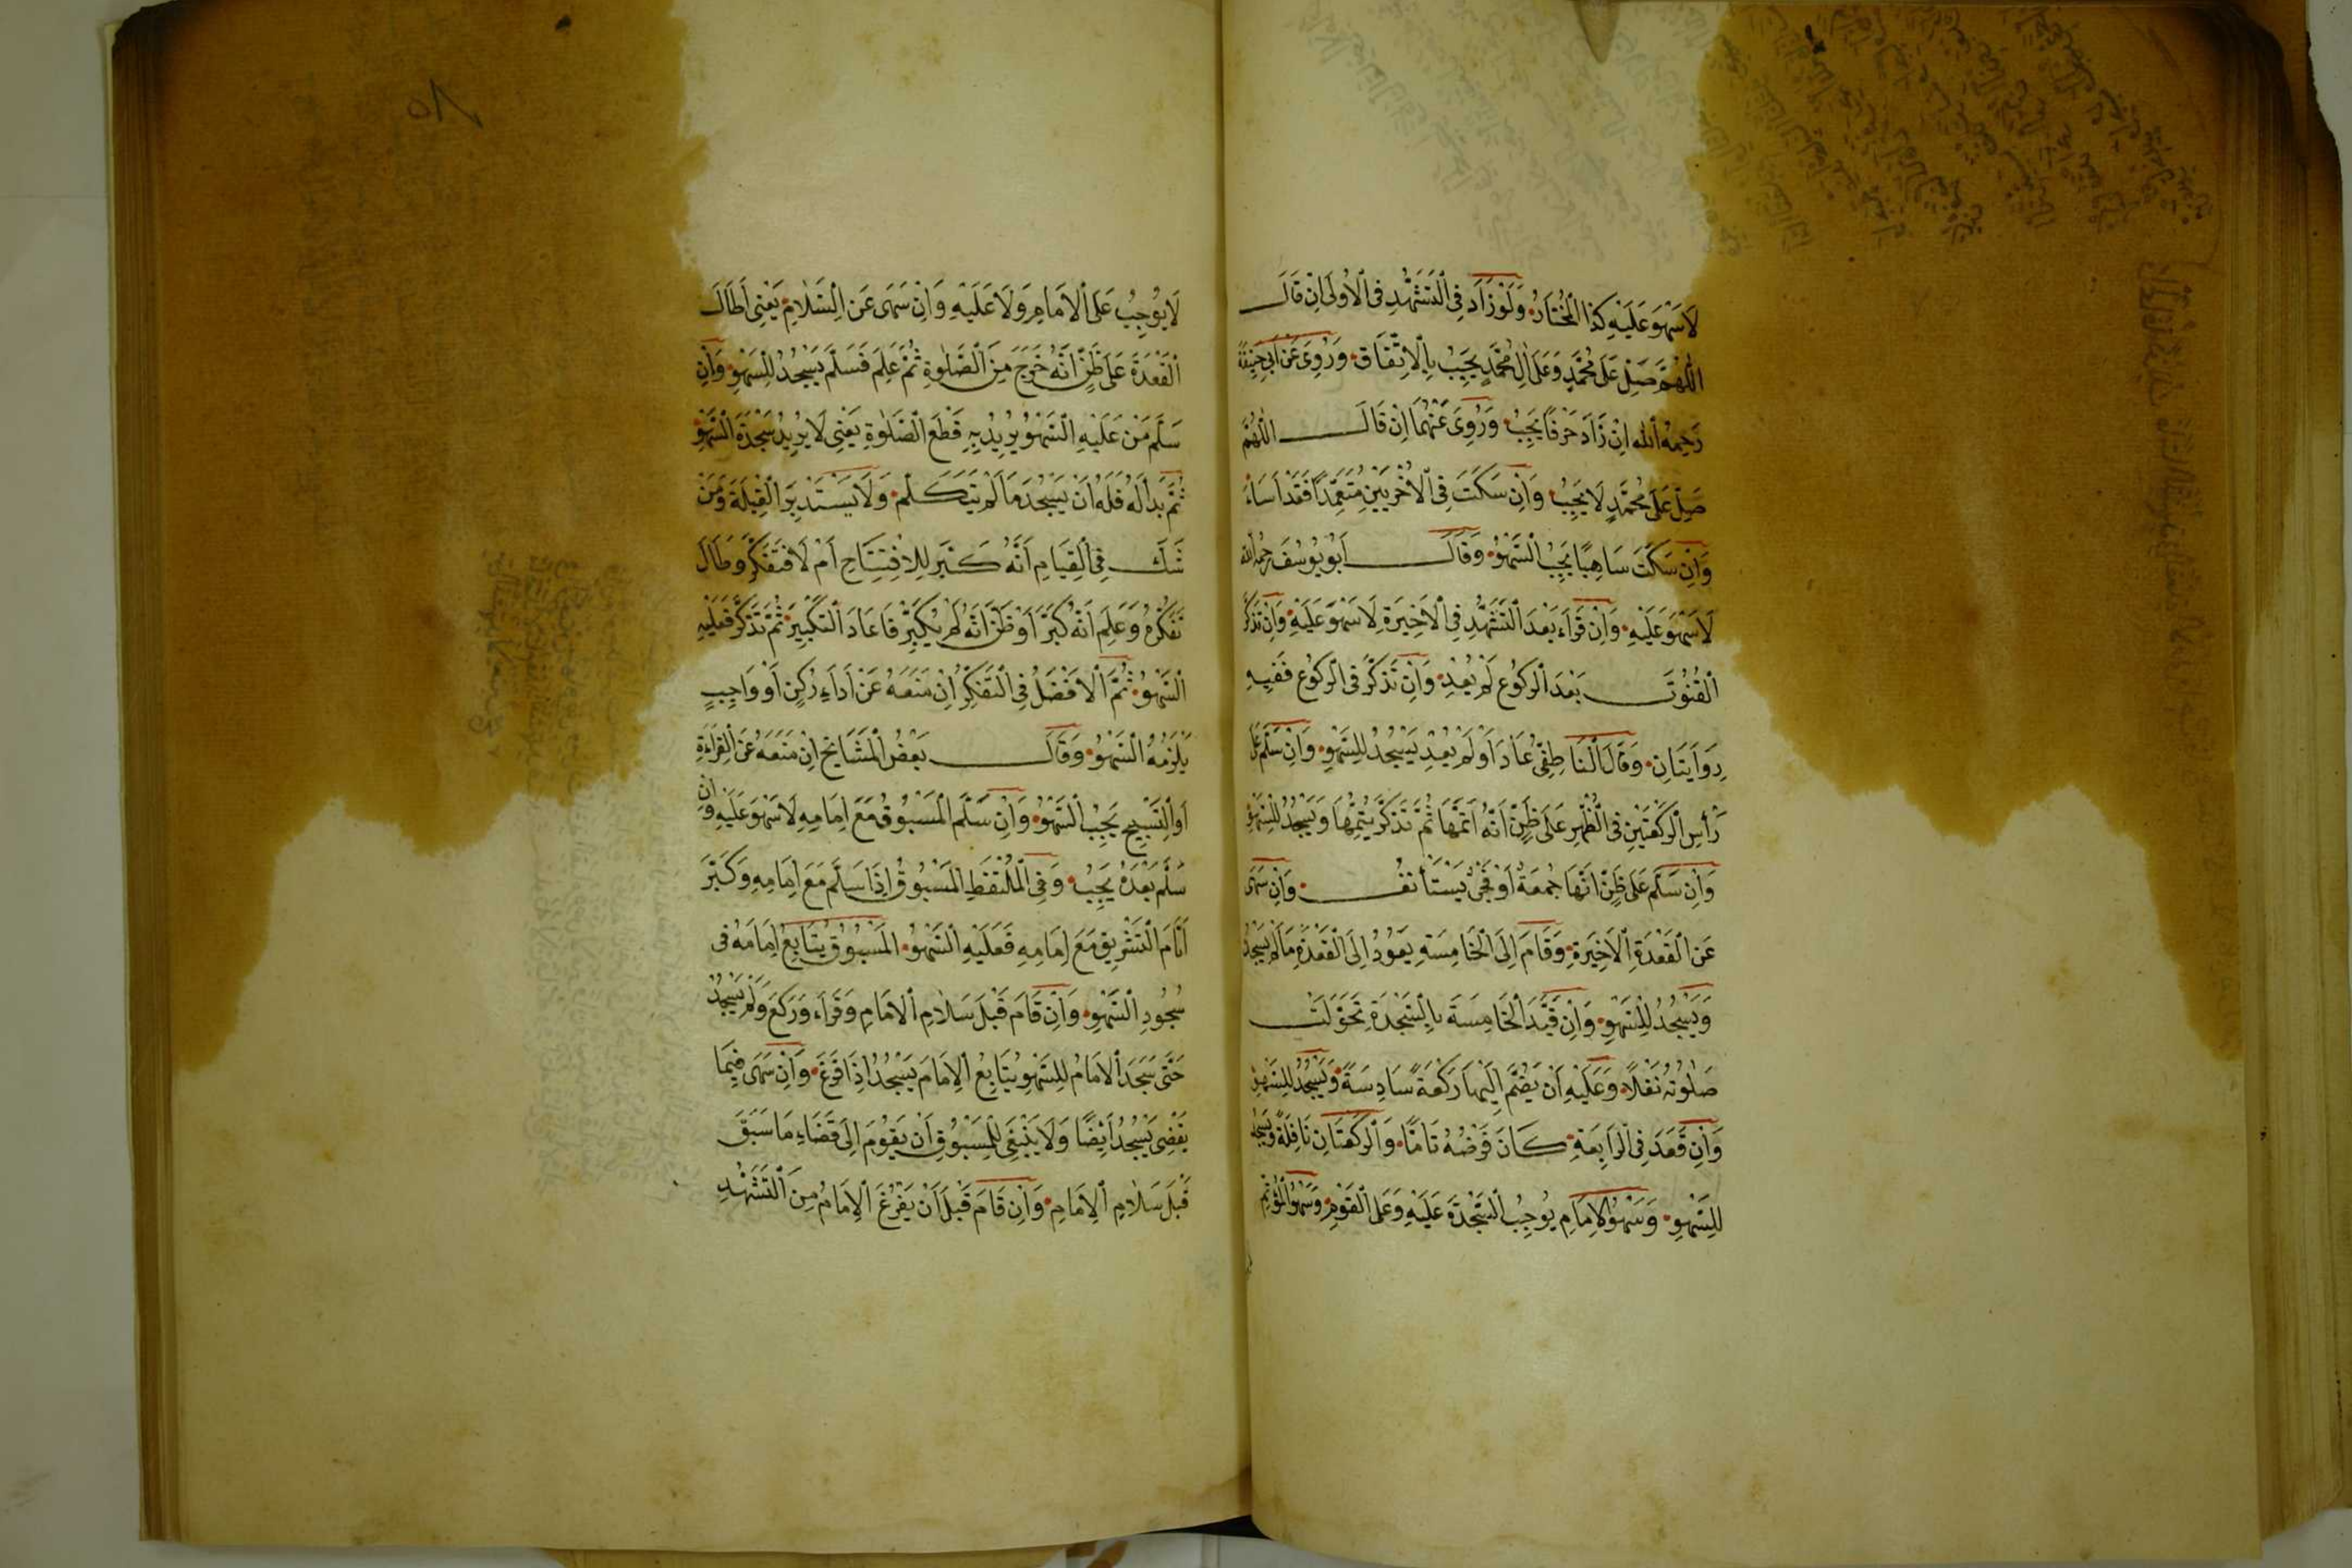 لَا سَهْوَ عَلَيْهِ كَذَا الْمُخْتَارُ وَلَوْ زَادَ فِى التَّشَهُّدِ فِى الْاُولَى اِنْ قَالَ
اَللّٰهُمَّ صَلِّ عَلَى مُحَمَّدٍ وَعَلَى اٰلِ مُحَمَّدٍ يَجِبُ بِالْاِتِّفَاقِ وَرُوِىَ عَنْ اَبِى حَنِيفَةَ
رَحِمَهُ اللّٰه اِنْ زَادَ حَرْفًا يَجِبُ وَرُوِىَ عَنْهُمَا اِنْ قَالَ اللّٰهُمَّ
صَلِّ عَلَى مُحَمَّدٍ لَا يَجِبُ وَاِنْ سَكَتَ فِى الْاُخْرَيَيْنِ مُتَعَمِّدًا فَقَدْ اَسَاءَ
وَاِنْ سَكَتَ سَاهِيًا يَجِبُ السَّهْوُ وَقَالَ اَبُو يُوسُفَ رحمه الله
لَا سَهْوَ عَلَيْهِ وَاِنْ قَرَاَ بَعْدَ التَّشَهُّدِ فِى الْاَخِيرَةِ لَا سَهْوَ عَلَيْهِ وَاِنْ تَذَكَّرَ
الْقُنُوتَ بَعْدَ الرُّكُوعِ لَمْ يَعُدْ وَاِنْ تَذَكَّرَ فِى الرُّكُوعِ فَفِيهِ
رِوَايَتَانِ وَقَالَ النَّاطِفِىُّ عَادَ اَوْ لَمْ يَعُدْ يَسْجُدُ لِلسَّهْوِ وَاِنْ سَلَّمَ عَلَى
رَأْسِ الرَّكْعَتَيْنِ فِى الظُّهْرِ عَلَى ظَنِّ اَنَّهُ اَتَمَّهَا ثُمَّ تَذَكَّرَ يُتِمُّهَا وَيَسْجُدُ لِلسَّهْوِ
وَاِنْ سَلَّمَ عَلَى ظَنِّ اَنَّهَا جُمُعَةٌ اَوْ فَجْرٌ يَسْتَأْنِفُ وَاِنْ سَهَى
عَنِ الْقَعْدَةِ الْاَخِيرَةِ وَقَامَ اِلَى الْخَامِسَةِ يَعُودُ اِلَى الْقَعْدَةِ مَا لَمْ يَسْجُدْ
وَيَسْجُدُ لِلسَّهْوِ وَاِنْ قَيَّدَ الْخَامِسَةَ بِالسَّجْدَةِ تَحَوَّلَتْ
صَلٰوتُهُ نَفْلًا وَعَلَيْهِ اَنْ يَضُمَّ اِلَيْهَا رَكْعَةً سَادِسَةً وَيَسْجُدُ لِلسَّهْوِ
وَاِنْ قَعَدَ فِى الرَّابِعَةِ كَانَ فَرْضُهُ تَامًّا وَالرَّكْعَتَانِ نَافِلَةً وَيَسْجُدُ
لِلسَّهْوِ وَسَهْوُ الْاِمَامِ يُوجِبُ السَّجْدَةَ عَلَيْهِ وَعَلَى الْقَوْمِ وَسَهْوُ الْمُؤْتَمِّ
٨٥
لَا يُوجِبُ عَلَى الْاِمَامِ وَلَا عَلَيْهِ وَاِنْ سَهَى عَنِ السَّلَامِ يَعْنِى اَطَالَ
الْقَعْدَةَ عَلَى ظَنِّ اَنَّهُ خَرَجَ مِنَ الصَّلٰوةِ ثُمَّ عَلِمَ فَسَلَّمَ يَسْجُدُ لِلسَّهْوِ وَاِنْ
سَلَّمَ مَنْ عَلَيْهِ السَّهْوُ يُرِيدُ بِهِ قَطْعَ الصَّلٰوةِ يَعْنِى لَا يُرِيدُ سَجْدَةَ السَّهْوِ
ثُمَّ بَدَا لَهُ فَلَهُ اَنْ يَسْجُدَ مَا لَمْ يَتَكَلَّمْ وَلَا يَسْتَدْبِرَ الْقِبْلَةَ وَمَنْ
شَكَّ فِى الْقِيَامِ اَنَّهُ كَبَّرَ لِلْاِفْتِتَاحِ اَمْ لَا فَتَفَكَّرَ وَطَالَ
تَفَكُّرُهُ وَعَلِمَ اَنَّهُ كَبَّرَ اَوْ ظَنَّ اَنَّهُ لَمْ يُكَبِّرْ فَاَعَادَ التَّكْبِيرَ ثُمَّ تَذَكَّرَ فَعَلَيْهِ
السَّهْوُ ثُمَّ الْاَفْضَلُ فِى التَّفَكُّرِ اِنْ مَنَعَهُ عَنْ اَدَاءِ رُكْنٍ اَوْ وَاجِبٍ
يَلْزَمُهُ السَّهْوُ وَقَالَ بَعْضُ الْمَشَايِخِ اِنْ مَنَعَهُ عَنِ الْقِرَاءَةِ
اَوِ التَّسْبِيحِ يَجِبُ السَّهْوُ وَاِنْ سَلَّمَ الْمَسْبُوقُ مَعَ اِمَامِهِ لَا سَهْوَ عَلَيْهِ وَاِنْ
سَلَّمَ بَعْدَهُ يَجِبُ وَفِى الْمُلْتَقَطِ الْمَسْبُوقُ اِذَا سَلَّمَ مَعَ اِمَامِهِ وَكَبَّرَ
اَيَّامَ التَّشْرِيقِ مَعَ اِمَامِهِ فَعَلَيْهِ السَّهْوُ الْمَسْبُوقُ يُتَابِعُ اِمَامَهُ فِى
سُجُودِ السَّهْوِ وَاِنْ قَامَ قَبْلَ سَلَامِ الْاِمَامِ وَقَرَاَ وَرَكَعَ وَلَمْ يَسْجُدْ
حَتَّى سَجَدَ الْاِمَامُ لِلسَّهْوِ يُتَابِعُ الْاِمَامَ يَسْجُدُ اِذَا فَرَغَ وَاِنْ سَهَى فِيمَا
يَقْضِى يَسْجُدُ اَيْضًا وَلَا يَنْبَغِى لِلْمَسْبُوقِ اَنْ يَقُومَ اِلَى قَضَاءِ مَا سَبَقَ
قَبْلَ سَلَامِ الْاِمَامِ وَاِنْ قَامَ قَبْلَ اَنْ يَفْرُغَ الْاِمَامُ مِنَ التَّشَهُّدِ